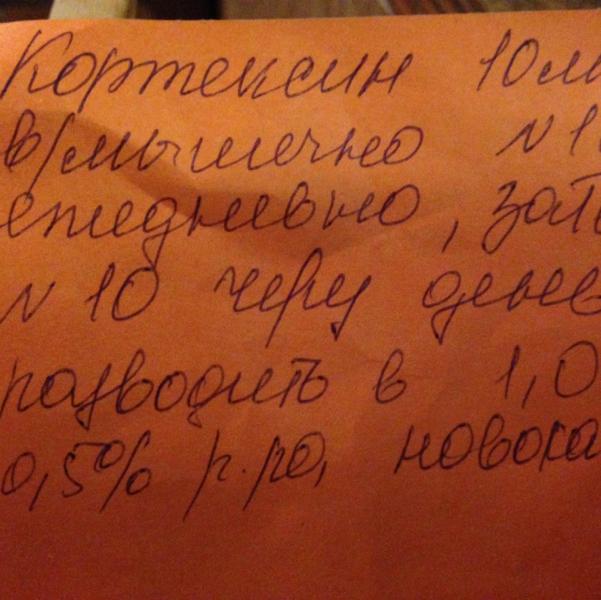 Кортексин 10м
в/мышечно N1
ежедневно, зат
N10 через день
разводить в 1,0
0,5% р-ра новока